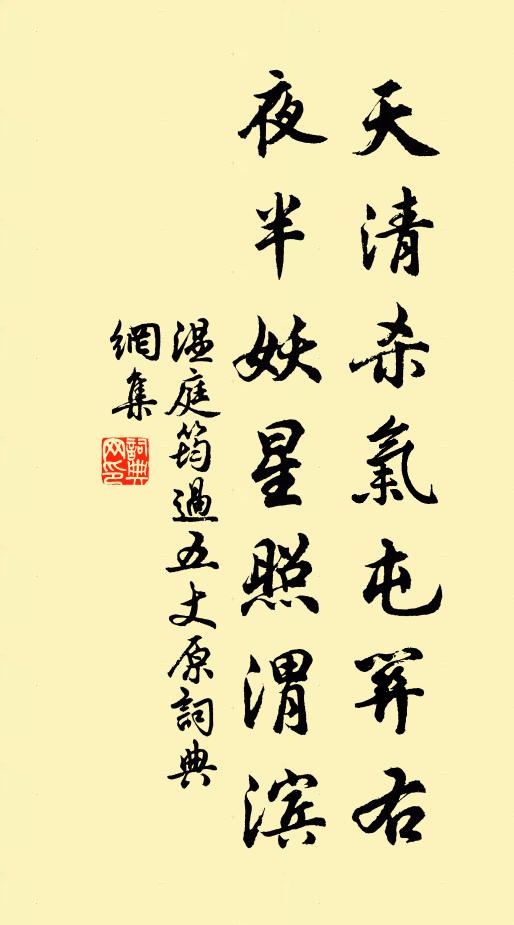 天清杀氣屯関右
夜半妖星照渭滨
温庭筠過五丈原詞典
網集
詞典網印